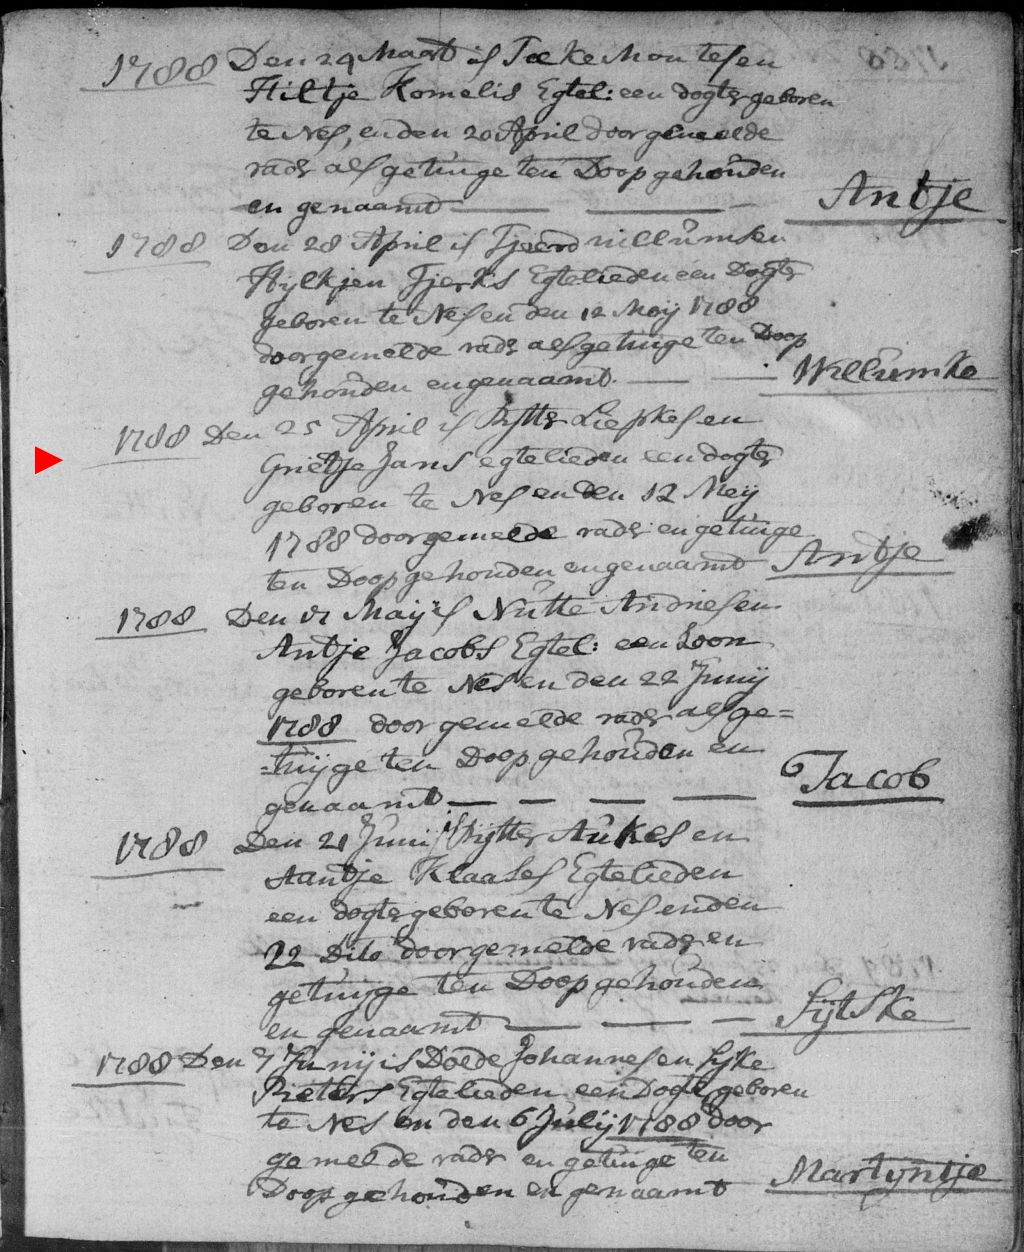 1788 Den 29 Maart is Foeke Montes en
Hiltje Kornelis Egtel: een dogter geboren
te Nes, en den 20 April door gemelde
vader als getuige ten Doop gehouden
en genaamt — Antje
1788 Den 28 April is Tjeerd Willums en
Hylkjen Tjerks Egtelieden een Dogter
geboren te Nes en den 12 Maÿ 1788
door gemelde vader als getuige ten Doop
gehouden en genaamt — Willumke
1788 Den 25 April is Rytter Liepkes en
Grietje Jans egtelieden een dogter
geboren te Nes en den 12 Meÿ
1788 door gemelde vader en getuige
ten Doop gehouden en genaamt Antje
1788 Den 17 Maÿ is Nutte Andries en
Antje Jacobs Egtel: een Zoon
geboren te Nes en den 22 Junÿ
1788 door gemelde vader als ge=
=tuijge ten Doop gehouden en
genaamt — Jacob
1788 Den 21 Junij is Aukes en
Aantje Klaases Egtelieden
een dogter geboren te Nes en den
22 Dito door gemelde vader en
getuijge ten Doop gehouden
en genaamt — Sijtske
1788 Den 7 Junij is Doede Johannes en Sijke
Pieters Egtelieden een Dogter geboren
te Nes en den 6 Julij 1788 door
gemelde vader en getuige ten
Doop gehouden en genaamt Martyntje